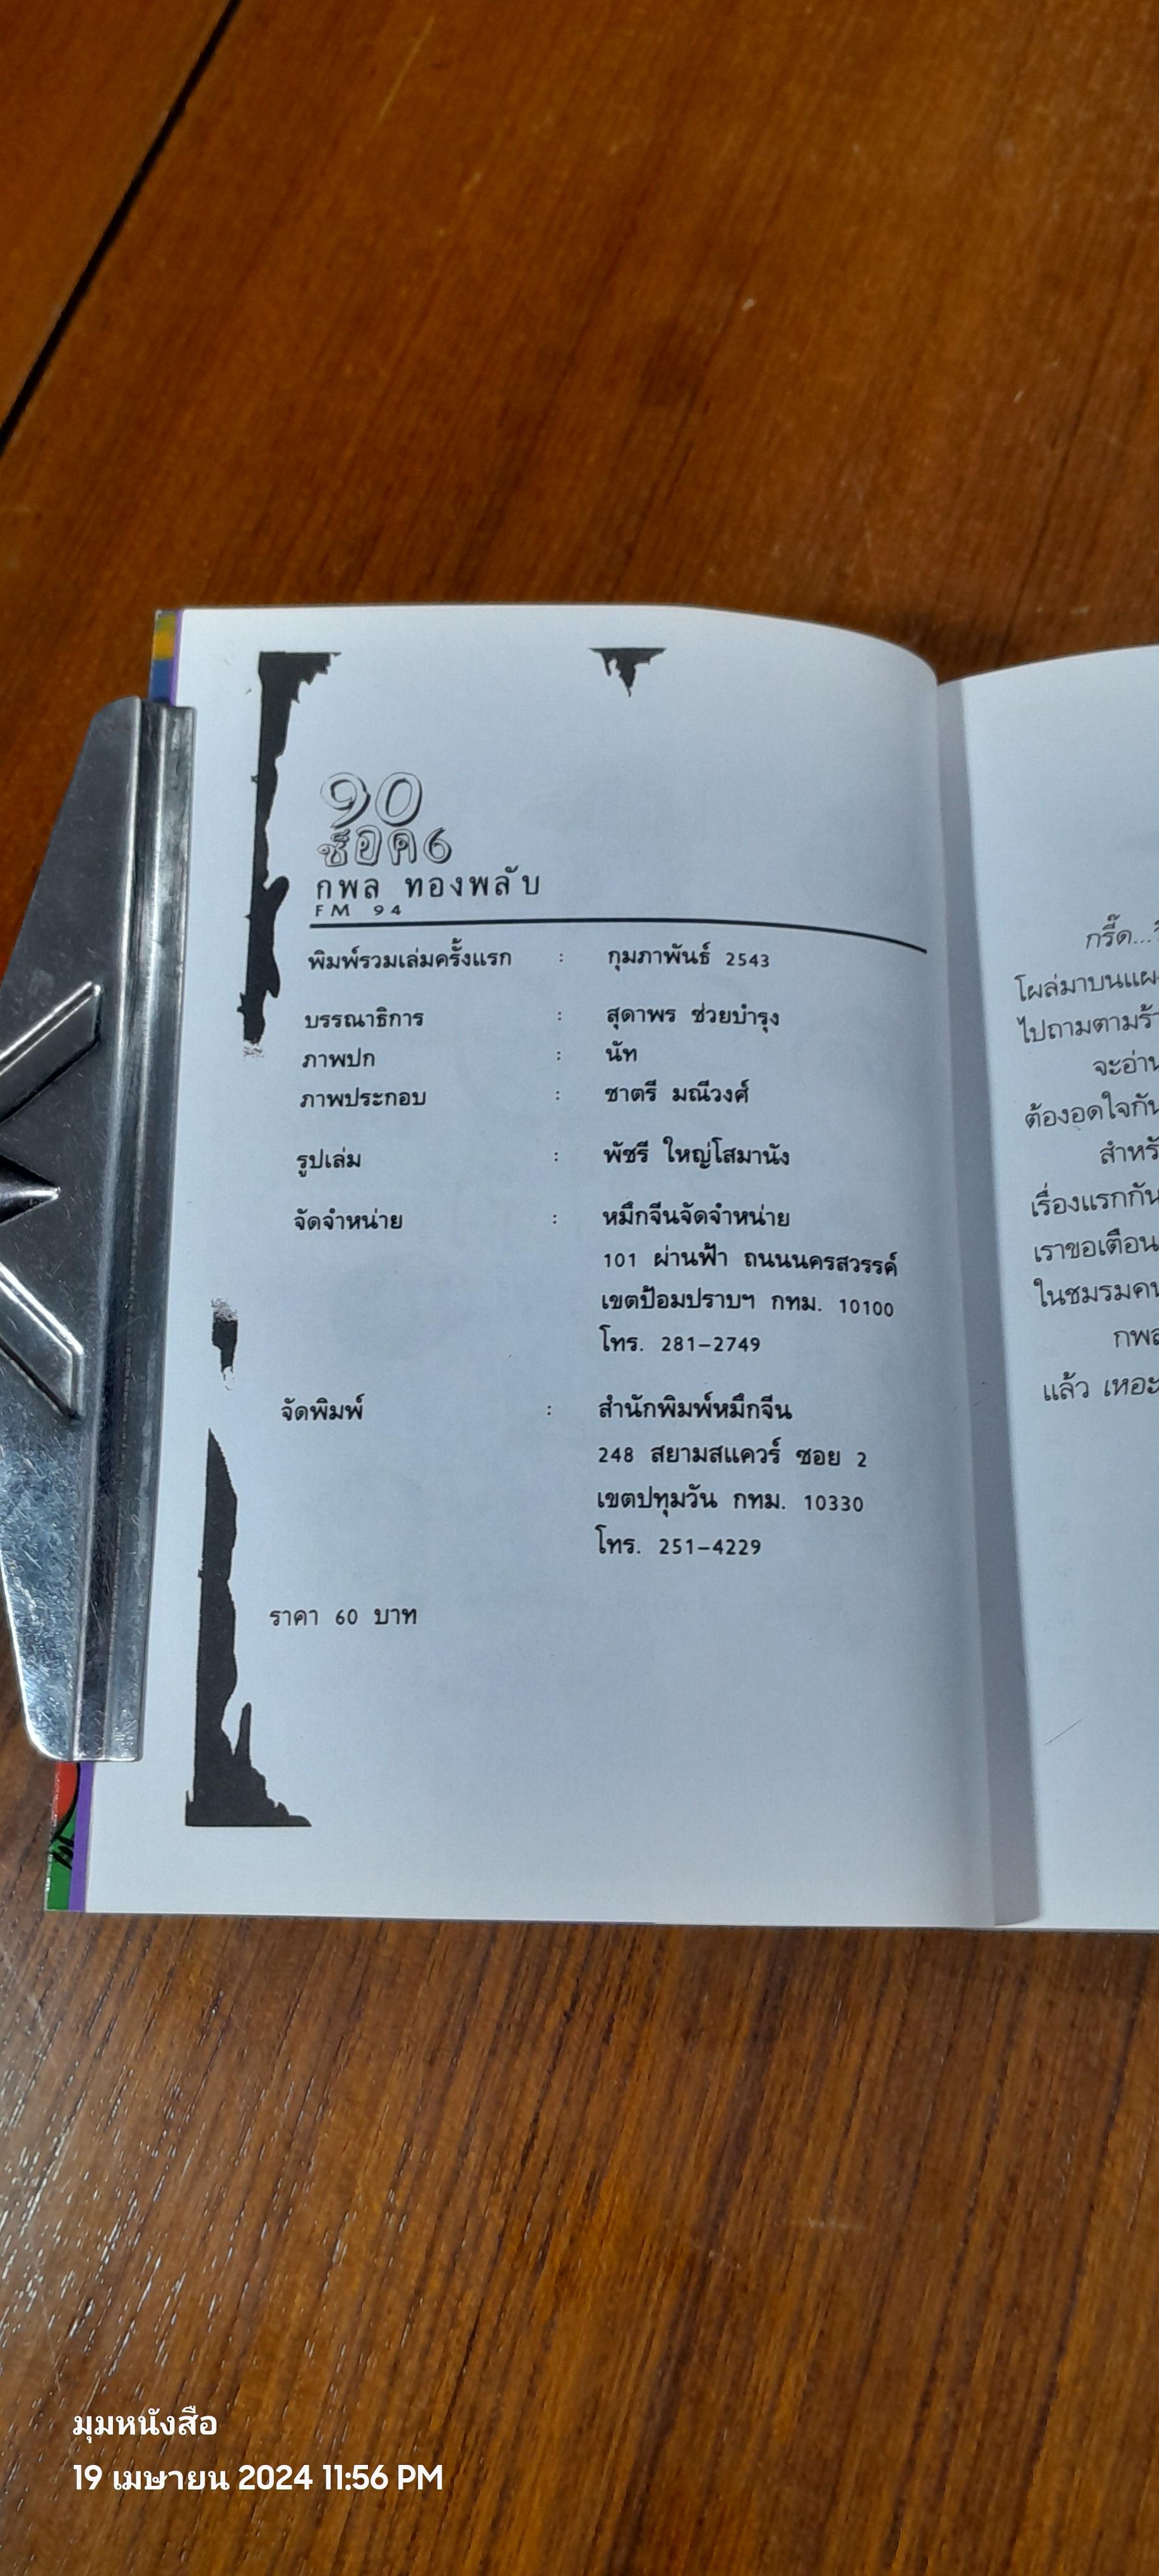 90
ช็อค6
กพล ทองพลับ
FM 94
พิมพ์รวมเล่มครั้งแรก : กุมภาพันธ์ 2543
บรรณาธิการ : สุดาพร ช่วยบำรุง
ภาพปก : นัท
ภาพประกอบ : ชาตรี มณีวงศ์
รูปเล่ม : พัชรี ใหญ่โสมานัง
จัดจำหน่าย : หมึกจีนจัดจำหน่าย
101 ผ่านฟ้า ถนนนครสวรรค์
เขตป้อมปราบฯ กทม. 10100
โทร. 281-2749
จัดพิมพ์ : สำนักพิมพ์หมึกจีน
248 สยามสแควร์ ซอย 2
เขตปทุมวัน กทม. 10330
โทร. 251-4229
ราคา 60 บาท
กรี๊ด...
โผล่มาบนแผ
ไปถามตามร้
จะอ่าน
ต้องอดใจกัน
สำหรั
เรื่องแรกกัน
เราขอเตือน
ในชมรมคน
กพล
แล้ว เหอะ
มุมหนังสือ
19 เมษายน 2024 11:56 PM